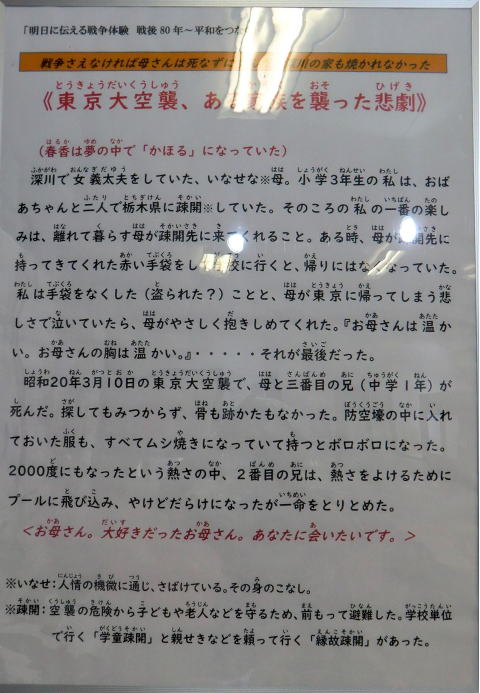 「明日に伝える戦争体験 戦後80年～平和をつな
戦争さえなければ母さんは死なず 川の家も焼かれなかった
《東京大空襲、あ 族を襲った悲劇》
（春香は夢の中で「かほる」になっていた）
深川で女義太夫をしていた、いなせな※母。小学3年生の私は、おば
あちゃんと二人で栃木県に疎開※していた。そのころの私の一番の楽し
みは、離れて暮らす母が疎開先に来てくれること。ある時、母が疎開先に
持ってきてくれた赤い手袋をし 校に行くと、帰りにはな なっていた。
私は手袋をなくした（盗られた？）ことと、母が東京に帰ってしまう悲
しさで泣いていたら、母がやさしく抱きしめてくれた。『お母さんは温か
い。お母さんの胸は温かい。』・・・・・それが最後だった。
昭和20年3月10日の東京大空襲で、母と三番目の兄（中学1年）が
死んだ。探してもみつからず、骨も跡かたもなかった。防空壕の中に入れ
ておいた服も、すべてムシ焼きになっていて持つとボロボロになった。
2000度にもなったという熱さの中、2番目の兄は、熱さをよけるために
プールに飛び込み、やけどだらけになったが一命をとりとめた。
＜お母さん。大好きだったお母さん。あなたに会いたいです。＞
※いなせ：人情の機微に通じ、さばけている。その身のこなし。
※疎開：空襲の危険から子どもや老人などを守るため、前もって避難した。学校単位
で行く「学童疎開」と親せきなどを頼って行く「縁故疎開」があった。